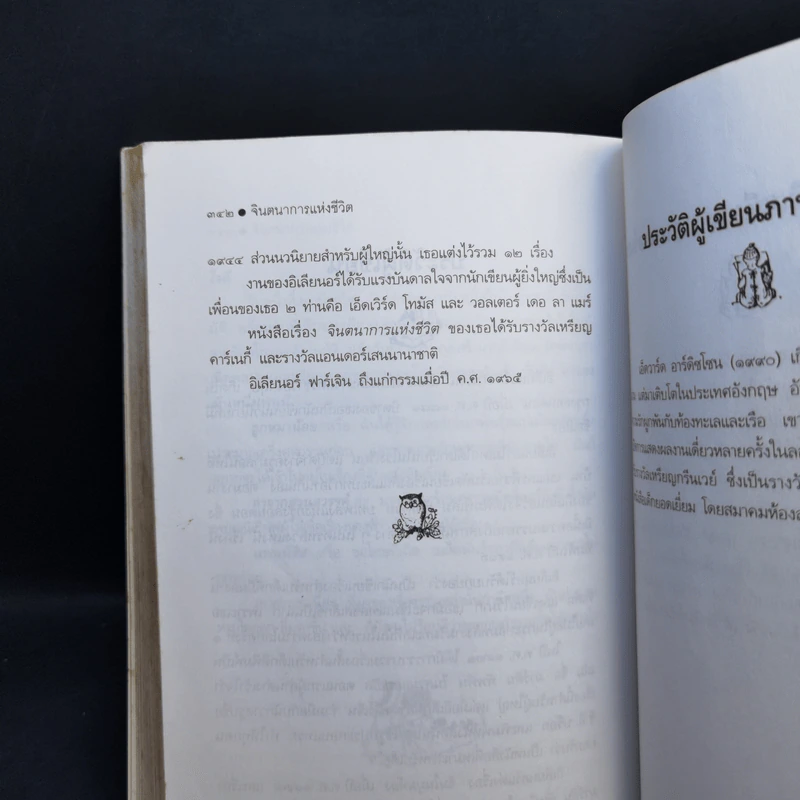 ๓๔๒ ● จินตนาการแห่งชีวิต
๑๙๔๔ ส่วนนวนิยายสำหรับผู้ใหญ่นั้น เธอแต่งไว้รวม ๑๒ เรื่อง
งานของอิเลียนอร์ได้รับแรงบันดาลใจจากนักเขียนผู้ยิ่งใหญ่ซึ่งเป็น
เพื่อนของเธอ ๒ ท่านคือ เอ็ดเวิร์ด โทมัส และ วอลเตอร์ เดอ ลา แมร์
หนังสือเรื่อง จินตนาการแห่งชีวิต ของเธอได้รับรางวัลเหรียญ
คาร์เนกี้ และรางวัลแอนเดอร์เสนนานาชาติ
อิเลียนอร์ ฟาร์เจิน ถึงแก่กรรมเมื่อปี ค.ศ. ๑๙๖๕
ประวัติผู้เขียนภา
เอ็ดวาร์ด อาร์ดิซโซน (๑๙๙๐) เ
แต่มาเติบโตในประเทศอังกฤษ
ผูกพันกับท้องทะเลและเรือ เขา
การแสดงผลงานเดี่ยวหลายครั้งในลอ
รางวัลเหรียญกรีนเวย์ ซึ่งเป็นรางวั
เด็กยอดเยี่ยม โดยสมาคมห้องส